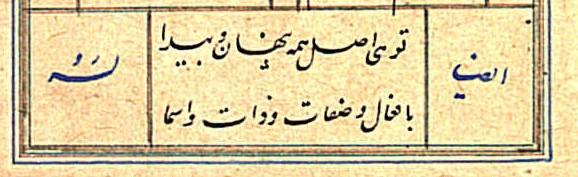 ایضا
توی اصل همه پنهان و پیدا
بافعال و صفات و ذات و اسما